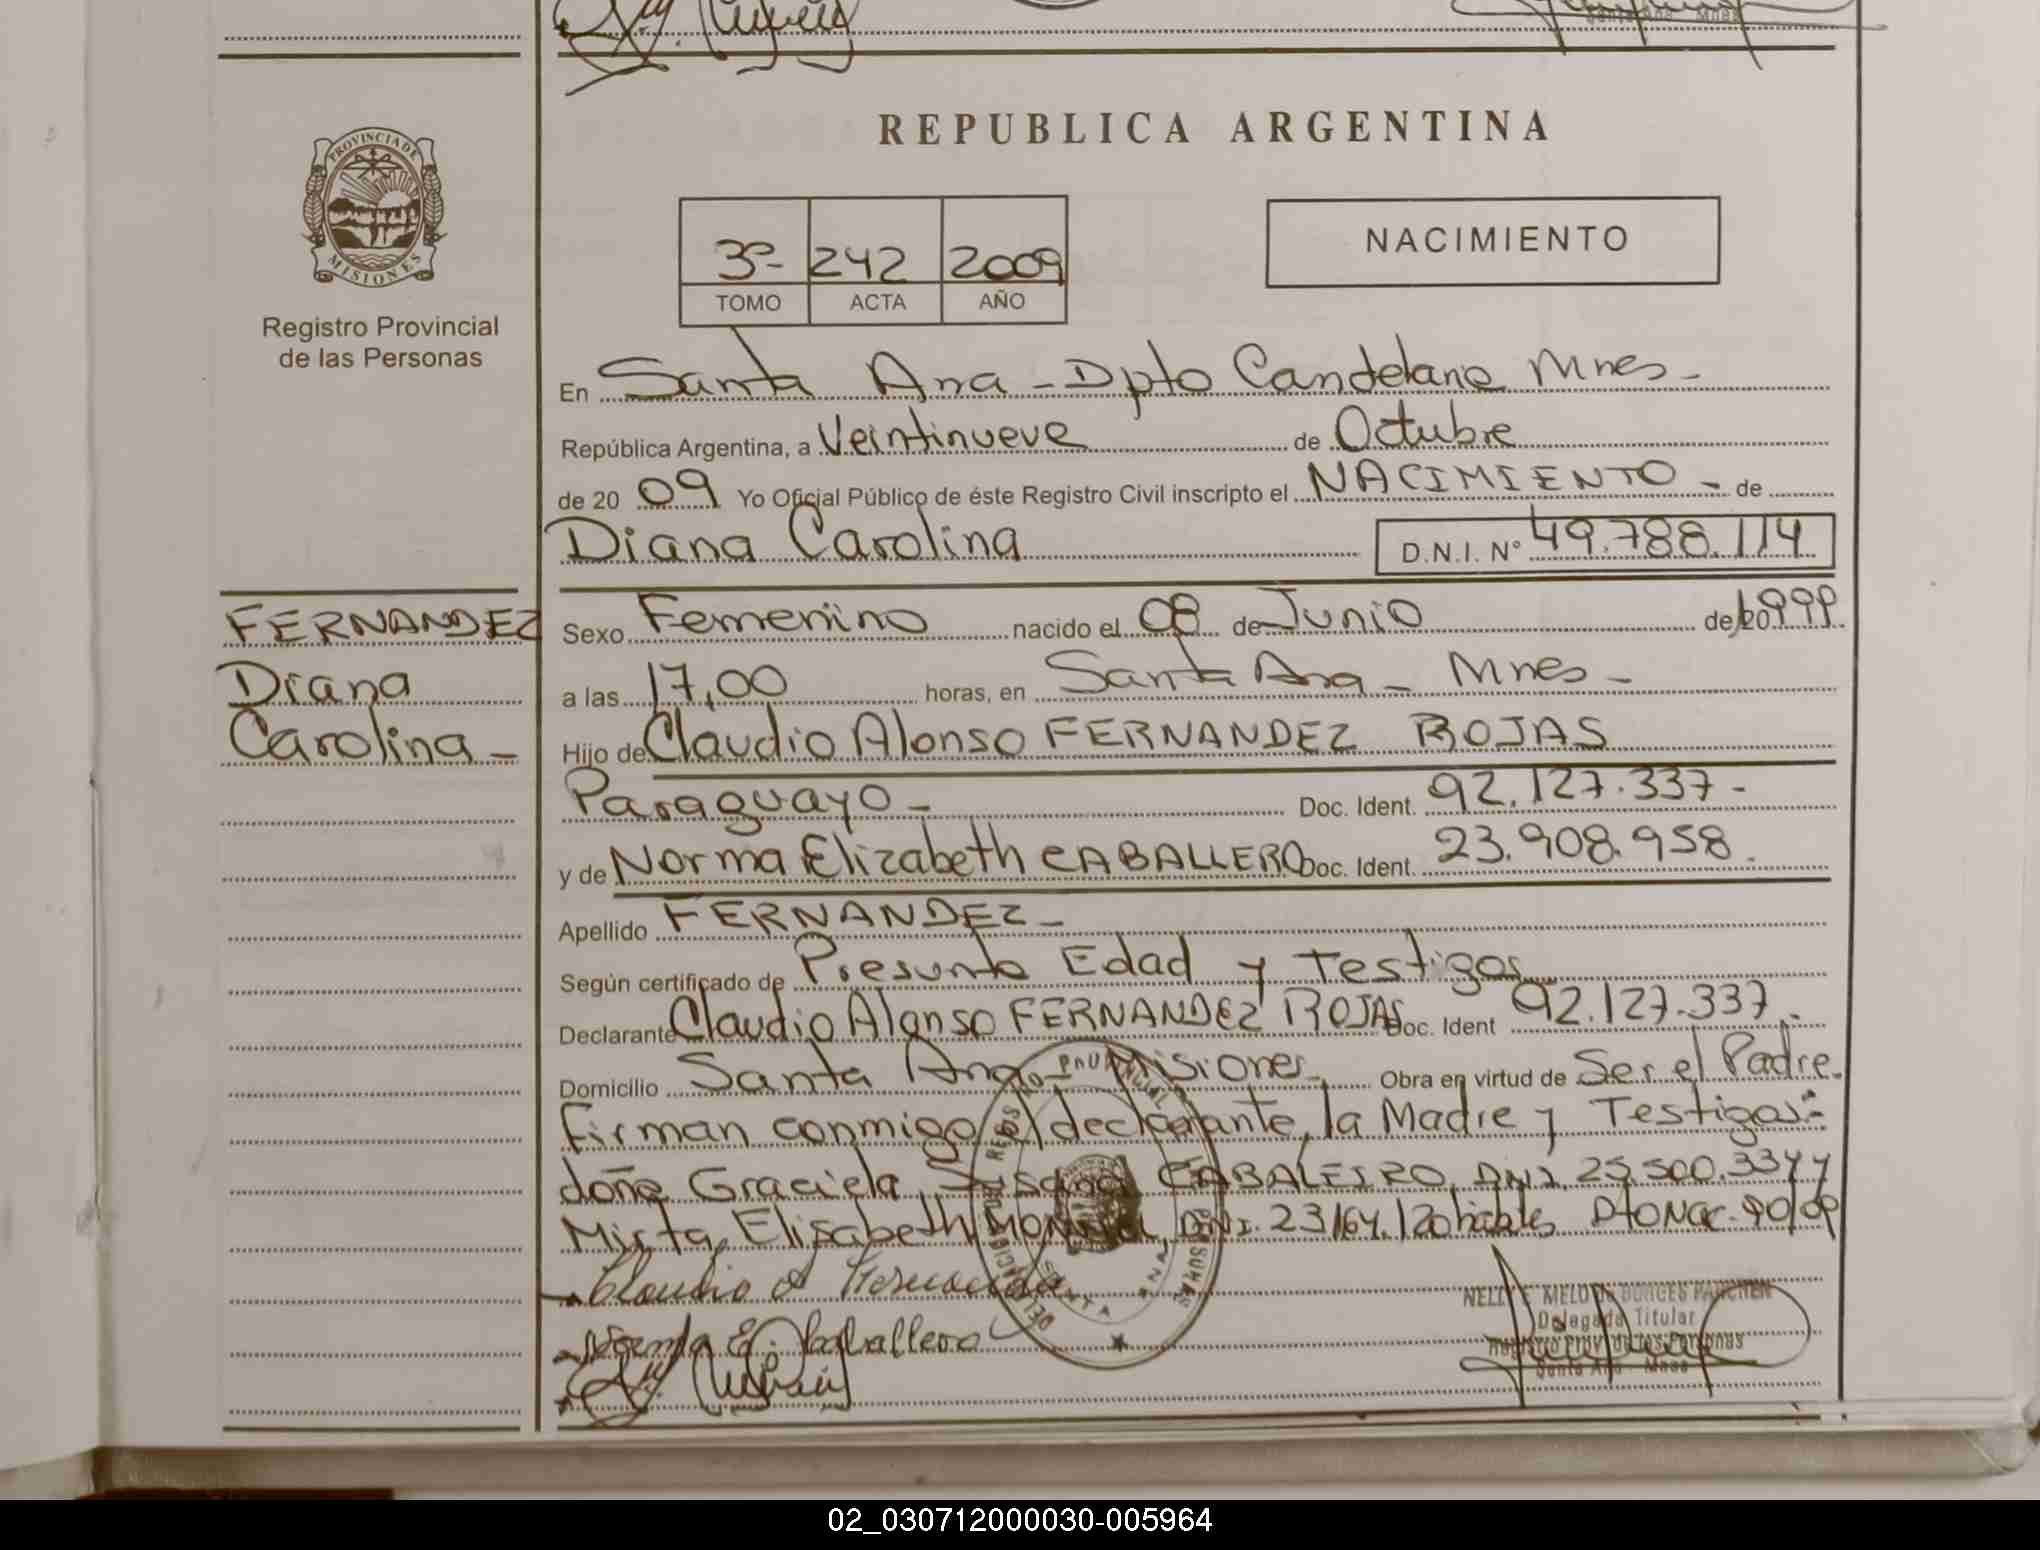 REPUBLICA ARGENTINA
PROVINCIA DE
MISIONES
Registro Provincial
de las Personas
3º- 242 2009
TOMO ACTA AÑO
NACIMIENTO
En Santa Ana - Dpto Candelaria Mnes -
República Argentina, a Veintinueve de Octubre
de 20 09 Yo Oficial Público de éste Registro Civil inscripto el NACIMIENTO - de
Diana Carolina D.N.I. Nº 49.788.114
FERNANDEZ
Diana
Carolina -
Sexo Femenino nacido el 08 de Junio de 1999
a las 17,00 horas, en Santa Ana - Mnes -
Hijo de Claudio Alonso FERNANDEZ ROJAS
Paraguayo - Doc. Ident. 92.127.337 -
y de Norma Elizabeth CABALLERO Doc. Ident. 23.908.958.
Apellido FERNANDEZ -
Según certificado de Presunta Edad y Testigos
Declarante Claudio Alonso FERNANDEZ ROJAS Doc. Ident 92.127.337.-
Domicilio Santa Ana Misiones Obra en virtud de Ser el Padre.
Firman conmigo el declarante, la Madre y Testigos:
doña Graciela Susana CABALEIRO DNI. 25.500.334 y
Mirta Elisabeth DNI. 23.164.120 hábiles Dto Nac. 90/09
Claudio A Fernandez
Norma E. Caballero
NELLY E MELO DE BORGES PARCHEN
Delegada Titular
Registro Prov de las Personas
Santa Ana - Mnes
02_030712000030-005964